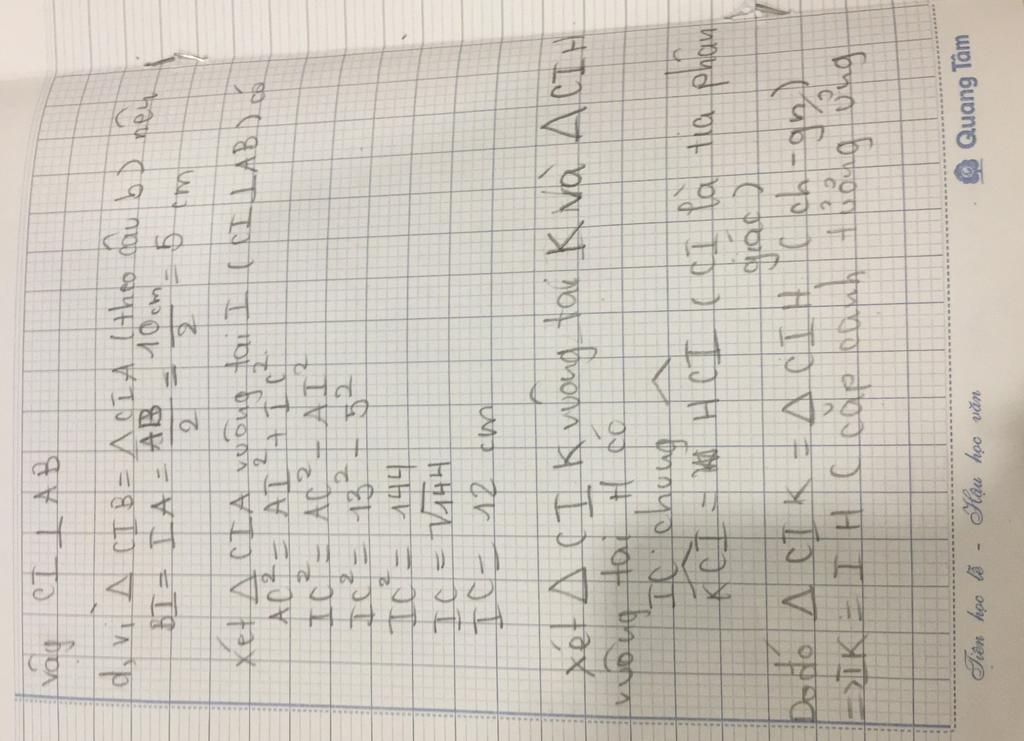 vậy CI ⊥ AB
d, vì Δ CIB = Δ CIA (theo câu b) nên
BI = IA = AB/2 = 10cm/2 = 5 cm
xét Δ CIA vuông tại I (CI ⊥ AB) có
AC² = AI² + IC²
IC² = AC² - AI²
IC² = 13² - 5²
IC² = 144
IC = √144
IC = 12 cm
xét Δ CIK vuông tại K và Δ CIH
vuông tại H có
IC chung
KCI = HCI (CI là tia phân
giác)
Do đó Δ CIK = Δ CIH (ch-gn)
=> IK = IH (cặp cạnh tương ứng
Tiên học lễ - Hậu học văn
Quang Tâm